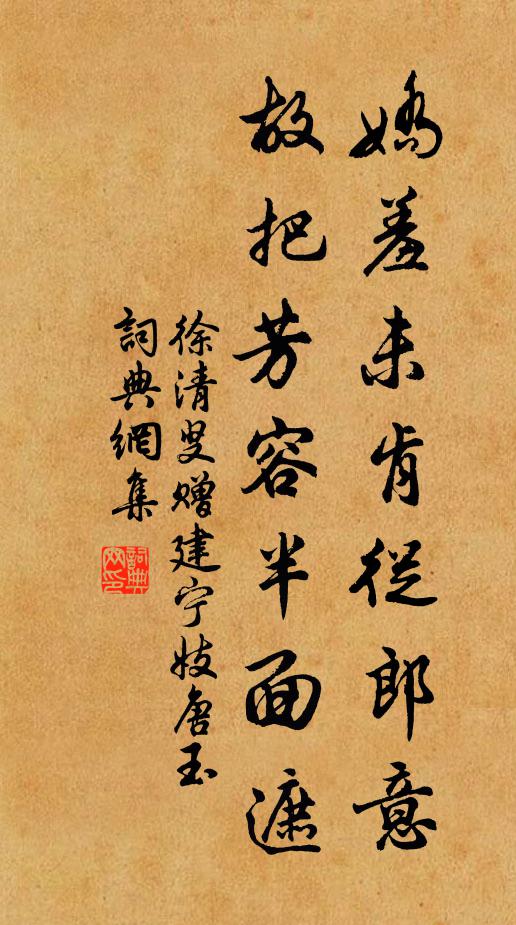 嬌羞未肯從郎意
故把芳容半面遮
徐清叟贈建宁妓唐玉
詞典網集
詞典网印